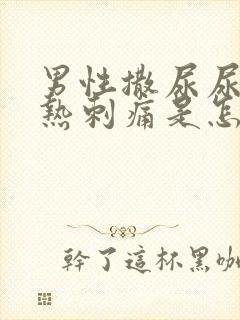 男性撒尿尿
熱刺痛是怎
幹了這杯黑咖